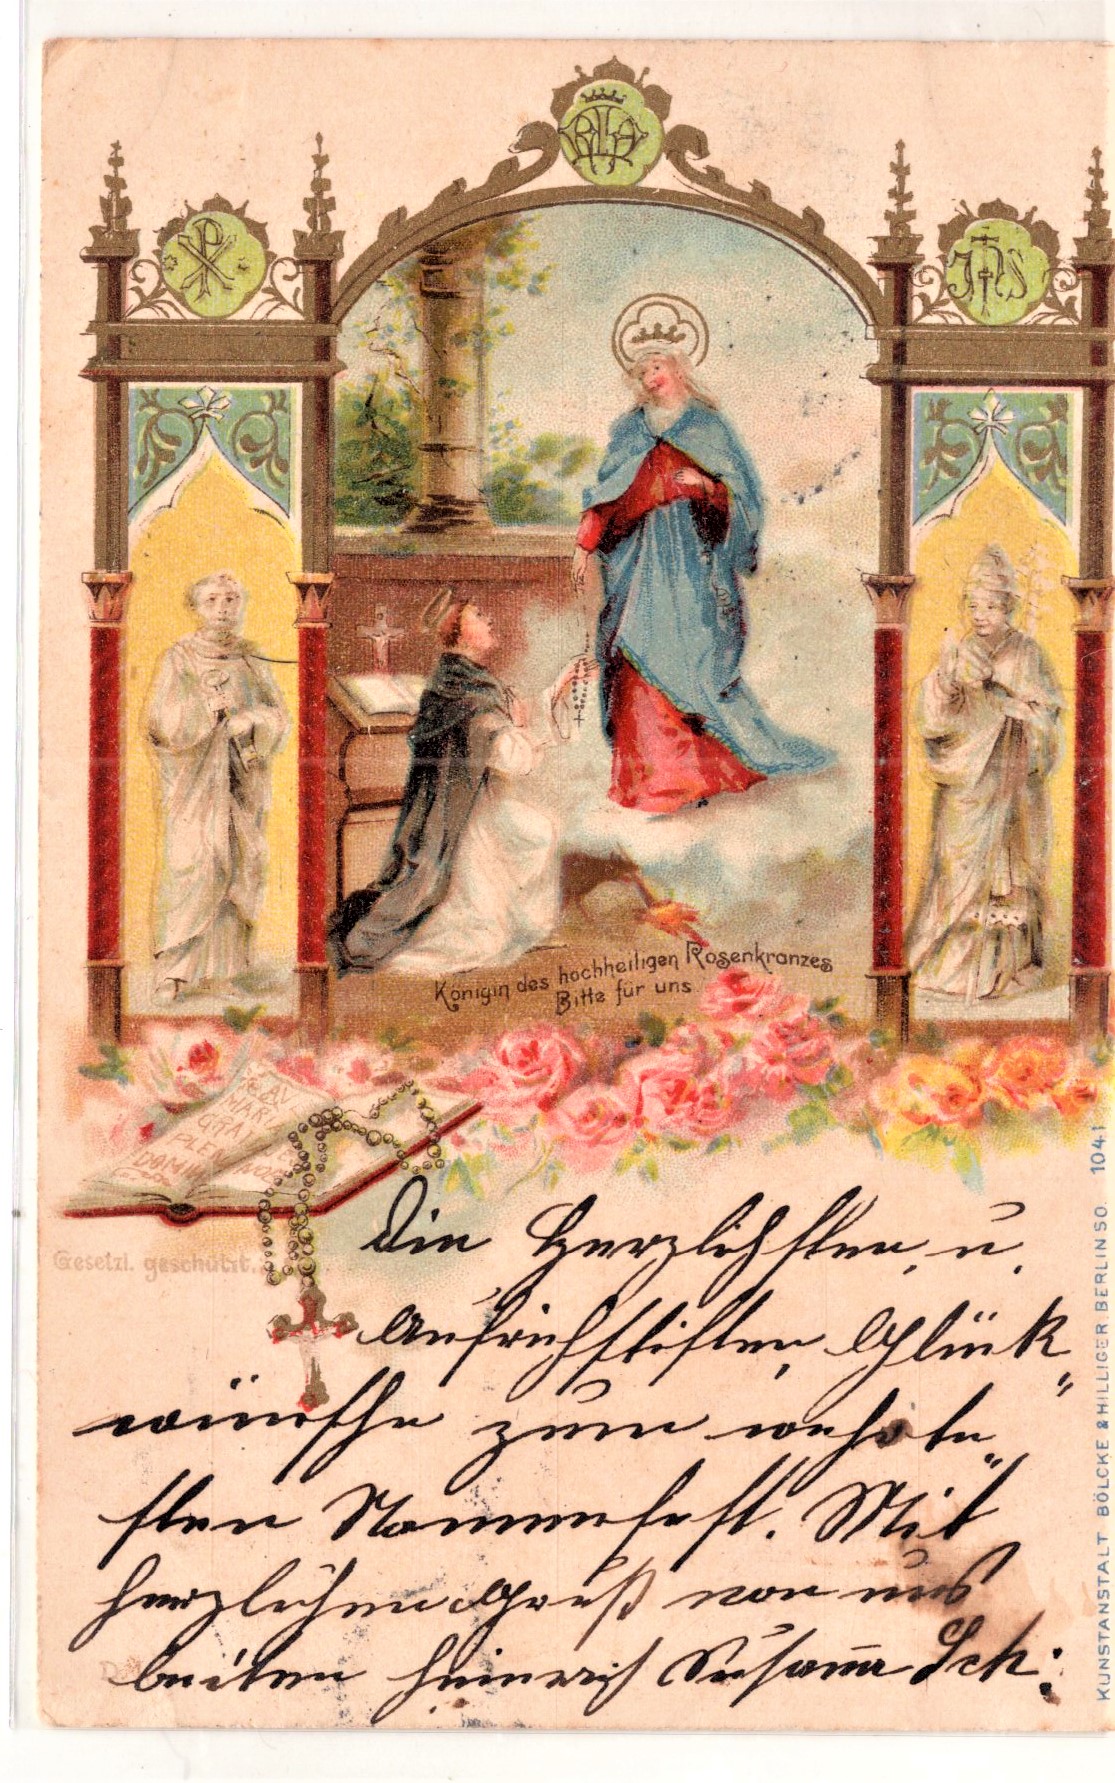 JHS
Königin des hochheiligen Rosenkranzes
Bitte für uns
AVE
MARIA
GRATIA
PLENA
DOMINUS
Gesetzl. geschützt.
Die herzlichsten u.
Aufrichstigsten Glück"
wünsche zum
sten Nammensfest. Mit
herzlichen Gruß von uns
beiden Heinrich Susanna Sch:
KUNSTANSTALT BÖLCKE & HILLIGER BERLIN SO. 1041